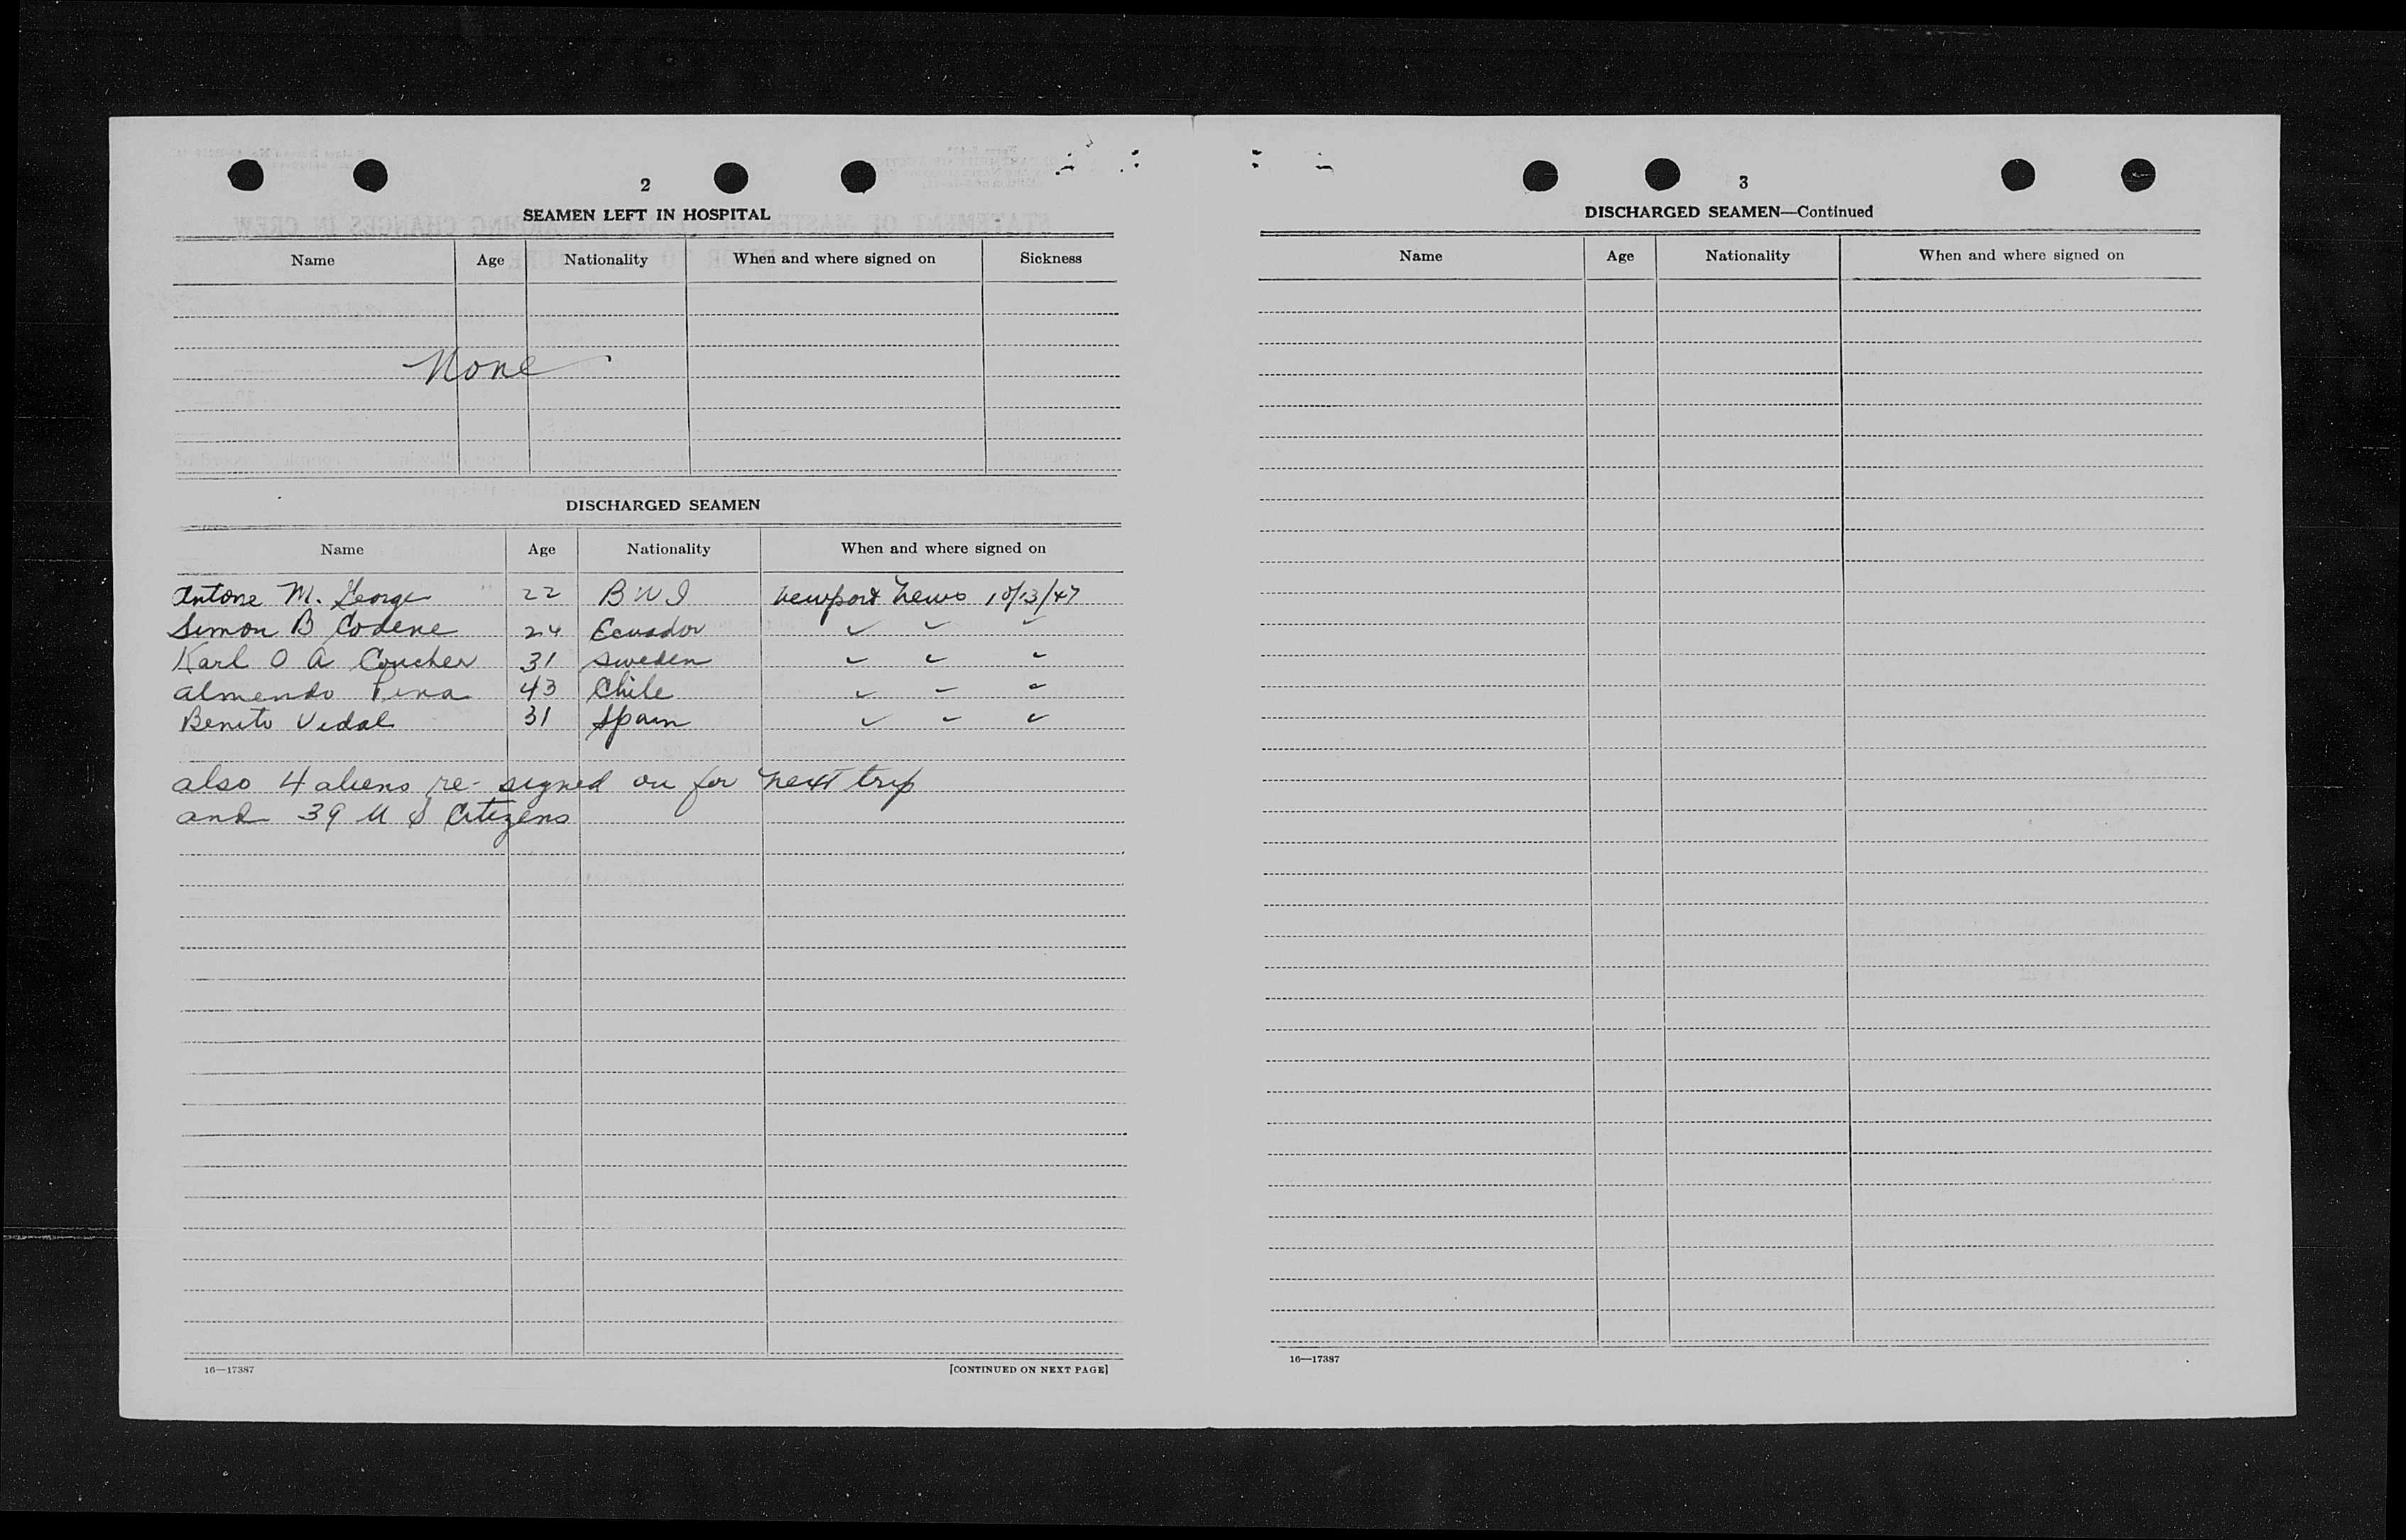 2
SEAMEN LEFT IN HOSPITAL
Name Age Nationality When and where signed on Sickness
None
DISCHARGED SEAMEN
Name Age Nationality When and where signed on
Antone M. George 22 BWI Newport News 10/13/47
Simon B Codene 24 Ecuador " " "
Karl O A Coucher 31 Sweden " " "
Almendo Pina 43 Chile " " "
Benito Vidal 31 Spain " " "
also 4 aliens re-signed on for next trip
and 39 U S Citizens
16—17387 [CONTINUED ON NEXT PAGE]
3
DISCHARGED SEAMEN—Continued
Name Age Nationality When and where signed on
16—17387